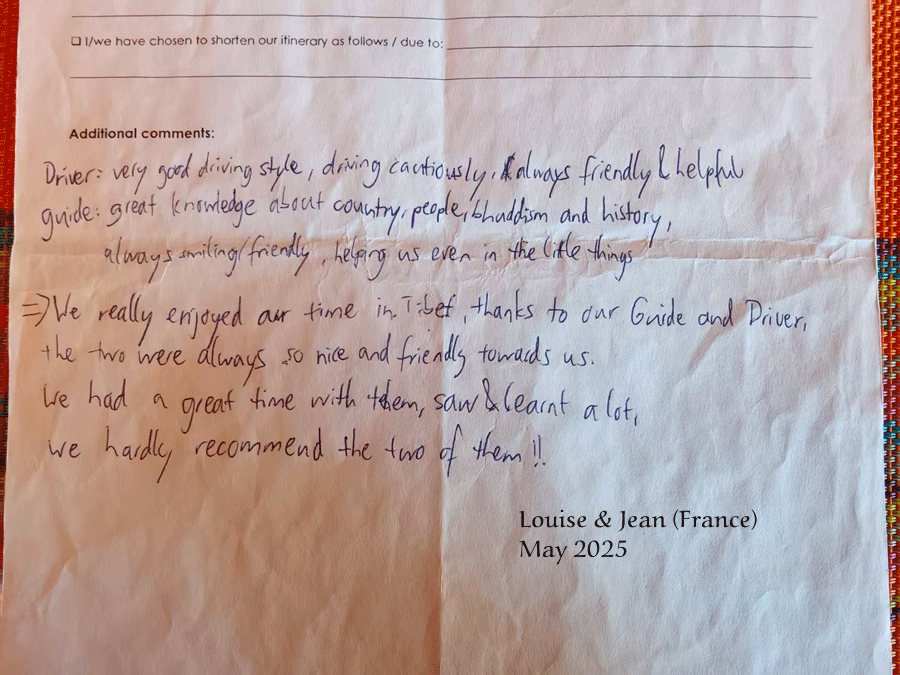 ❑ I/we have chosen to shorten our itinerary as follows / due to:
Additional comments:
Driver: very good driving style, driving cautiously, always friendly & helpful
guide: great knowledge about country, people, bhuddism and history,
always smiling/friendly, helping us even in the little things
⇒ We really enjoyed our time in Tibet, thanks to our Guide and Driver,
the two were always so nice and friendly towards us.
We had a great time with them, saw & learnt a lot,
we hardly recommend the two of them!!
Louise & Jean (France)
May 2025